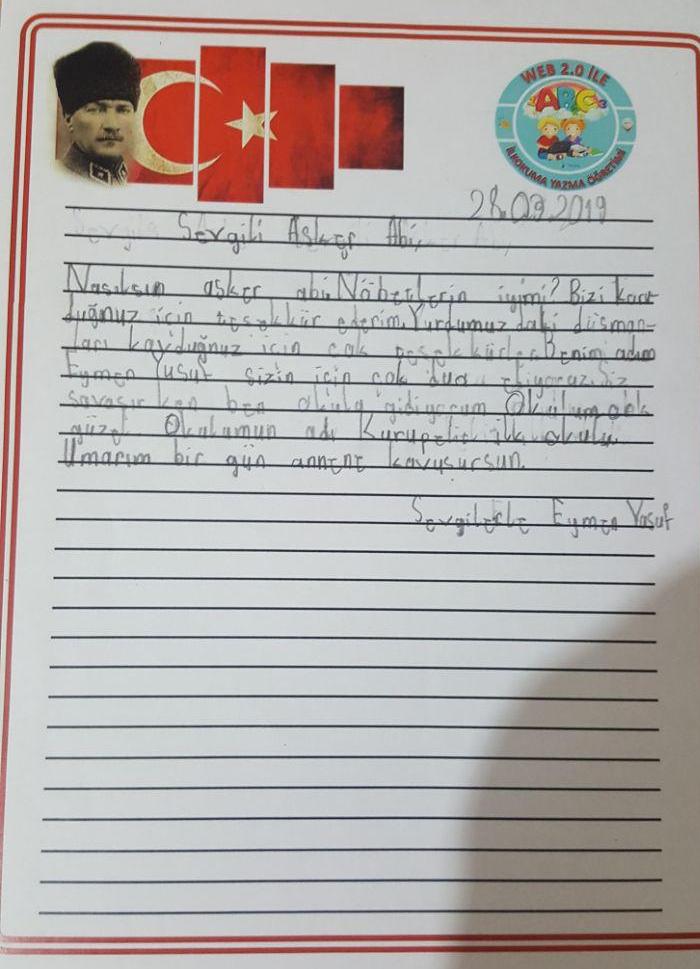 WEB 2.0 İLE
ABC
İLKOKUMA YAZMA ÖĞRETİMİ
28.09.2019
Sevgili Asker Abi,
Nasılsın asker abi. Nöbetlerin iyimi? Bizi koru-
duğnuz için teşekkür ederim. Yurdumuz daki düşman-
ları kovduğnuz için çok teşekkürler. Benim adım
Eymen Yusuf sizin için çok dua ediyoruz. Siz
savaşır ken ben okula gidiyorum Okulum çok
güzel Okulumun adı Kurupelit ilk okulu.
Umarım bir gün annene kavuşursun.
Sevgilerle Eymen Yusuf